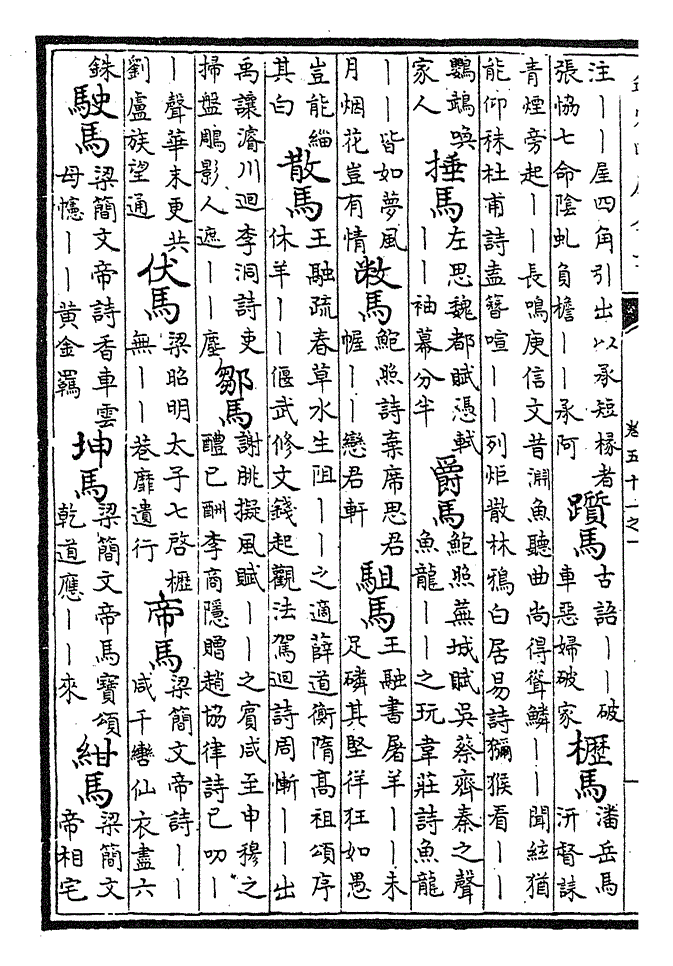 卷五十一之一
注丨丨屋四角引出以承短椽者
張協七命陰虬負檐丨丨承阿
躓馬
古語丨丨破
車惡婦破家
櫪馬
潘岳馬
汧督誄
青煙旁起丨丨長鳴庾信文昔淵魚聽曲尚得聳鱗丨丨聞絃猶
能仰秣杜甫詩盍簪喧丨丨列炬散林鴉白居易詩獼猴看丨丨
鸚鵡喚
家人
捶馬
左思魏都賦憑軾
丨丨袖幕分半
爵馬
鮑照蕪城賦吳蔡齊秦之聲
魚龍丨丨之玩韋莊詩魚龍
丨丨皆如夢風
月烟花豈有情
敝馬
鮑照詩棄席思君
幄丨丨戀君軒
駔馬
王融書屠羊丨丨未
足磷其堅徉狂如愚
豈能緇
其白
散馬
王融疏春草水生阻丨丨之適薛道衡隋高祖頌序
休羊丨丨偃武修文錢起觀法駕迴詩周慚丨丨出
禹讓濬川迴李洞詩吏
掃盤鵰影人遮丨丨塵
鄒馬
謝朓擬風賦丨丨之賓咸至申穆之
醴已酬李商隱贈趙協律詩已叨丨
丨聲華末更共
劉盧族望通
伏馬
梁昭明太子七啓櫪
無丨丨巷靡遺行
帝馬
梁簡文帝詩丨丨
咸千轡仙衣盡六
銖
駛馬
梁簡文帝詩香車雲
母幰丨丨黃金羈
坤馬
梁簡文帝馬寶頌
乾道應丨丨來
紺馬
梁簡文
帝相宅